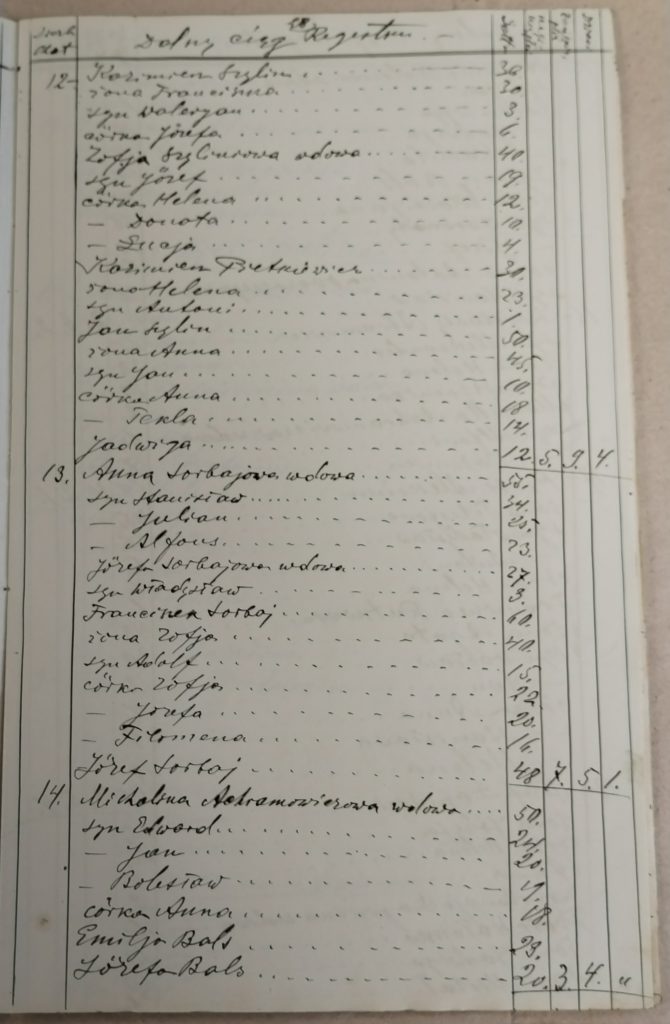 58.
Dalszy ciąg Regestru. —
12. Kazimierz Szylin 36
żona Franciszka 30
syn Waleryan 3.
córka Józefa 6.
Zofja Szylinowa wdowa 40.
syn Józef 19.
córka Helena 12.
— Donata 10.
— Łucja 4.
Kazimierz Pietkiewicz 30.
żona Helena 23.
syn Antoni 1.
Jan Szylin 50.
żona Anna 45.
syn Jan 10.
córka Anna 18
— Tekla 14.
Jadwiga 12 5. 9. 4.
13. Anna Sorbajowa wdowa 55.
syn Stanisław 34.
— Julian 25.
— Alfons 23.
Józefa Sorbajowa wdowa 27.
syn Władysław 3.
Franciszek Sorbaj 60.
żona Zofja 40.
syn Adolf 15.
córka Zofja 22
— Józefa 20.
— Filomena 16.
Józef Sorbaj 48 7. 5. 1.
14. Michalina Achramowiczowa wdowa 50.
syn Edward 24.
— Jan 20.
— Bolesław 19.
córka Anna 18.
Emilja Bals 23.
Józefa Bals 20. 3. 4. "